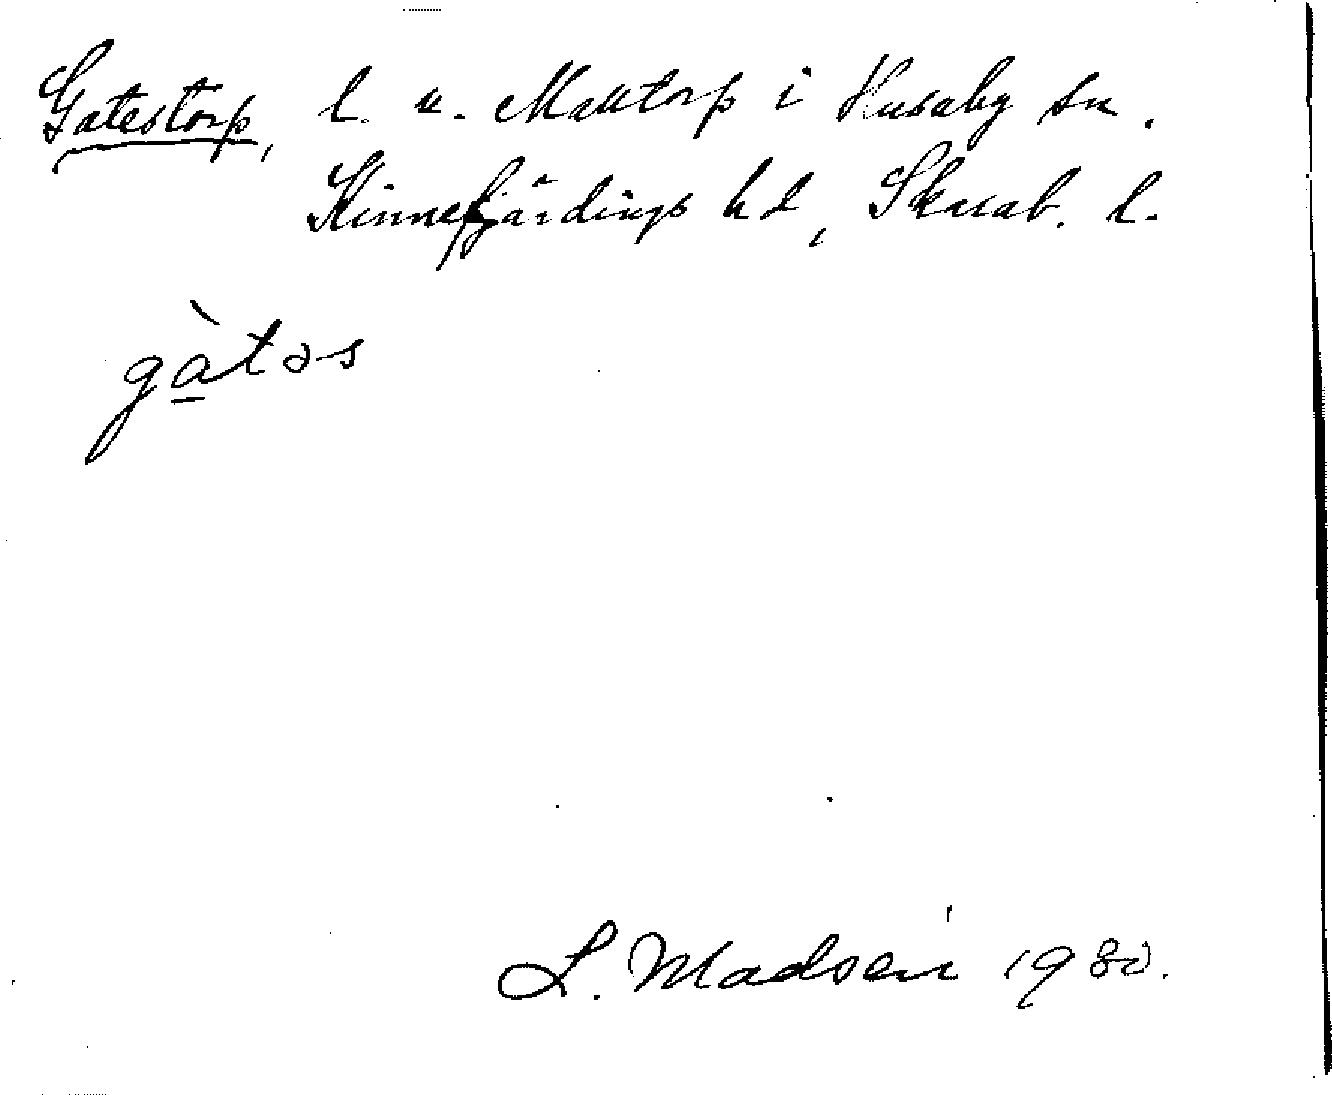 Gatestorp, l. u. Maktorp i Husaby sn.
Kinnefjärdings hd, Skarab. l.
gàtəs
L. Madsen 1980.